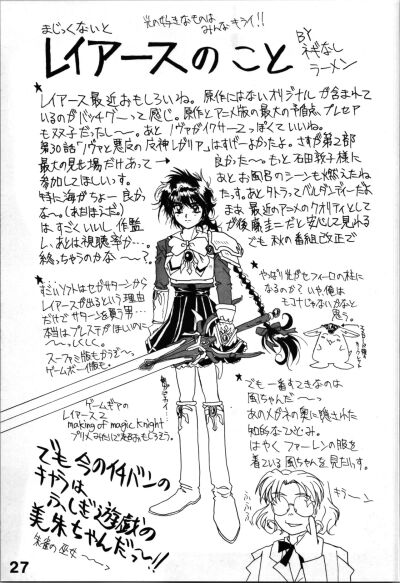 光の好きなものは
みんなキライ!!
まじっくないと
レイアースのこと
BY
ネギなし
ラーメン
★
レイアース最近おもしろいね。原作にはないオリジナルが含まれて
いるのがバッチグーって感じ。原作とアニメ版の最大の予省点、プレセア
も双子だったし〜。あとノヴァがイクサー2っぽくていいね。
第30話「ノヴァと悪夢の反神レガリア」はすげーよかったよ。さすが第2部
最大の見せ場だけあって→良かった〜。もっと石田敦子様に
参加してほしいっす。
特に海がちょー良か
な〜。(まだほうだ)
は、すごくいいし作監
し、あとは視聴率か…。
終っちゃうのかな〜?。
あとお風呂のシーンも燃えたね
たっす。あとタトラってバルダンディーだよ
まぁ、最近のアニメのクオリティとして
が後藤圭二だと安心して見れる
でも秋の番組改正で
★
すごいソフトはセガサターンから
レイアースが出るという理由
だけでサターンを買う男…
本当はプレステがほしいのに
〜。しくしく。
スーファミ版もかうぞ〜。
ゲームボーイ版も。
★
やっぱ光がセフィーロの柱に
なるのかて いや俺は
モコナじゃないかなと
思う。
ゲームギアの
レイアース2
making of magic knight
プリメみたいで超おもしろそう。
★
でも一番すてきなのは
風ちゃんだ〜
あのメガネの奥に隠された
知的なひとみ。
はやくファーレンの服を
着ている風ちゃんを見たいっす。
でも今のイチバンの
キャラは
ふしぎ遊戯の
美朱ちゃんだ〜!!
朱雀の巫女〜
キラーン
ふふふ
27